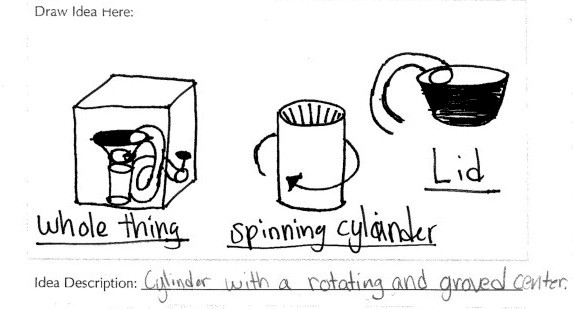 Draw Idea Here:
Lid
whole thing
spinning cylainder
Idea Description: Cylinder with a rotating and groved center.